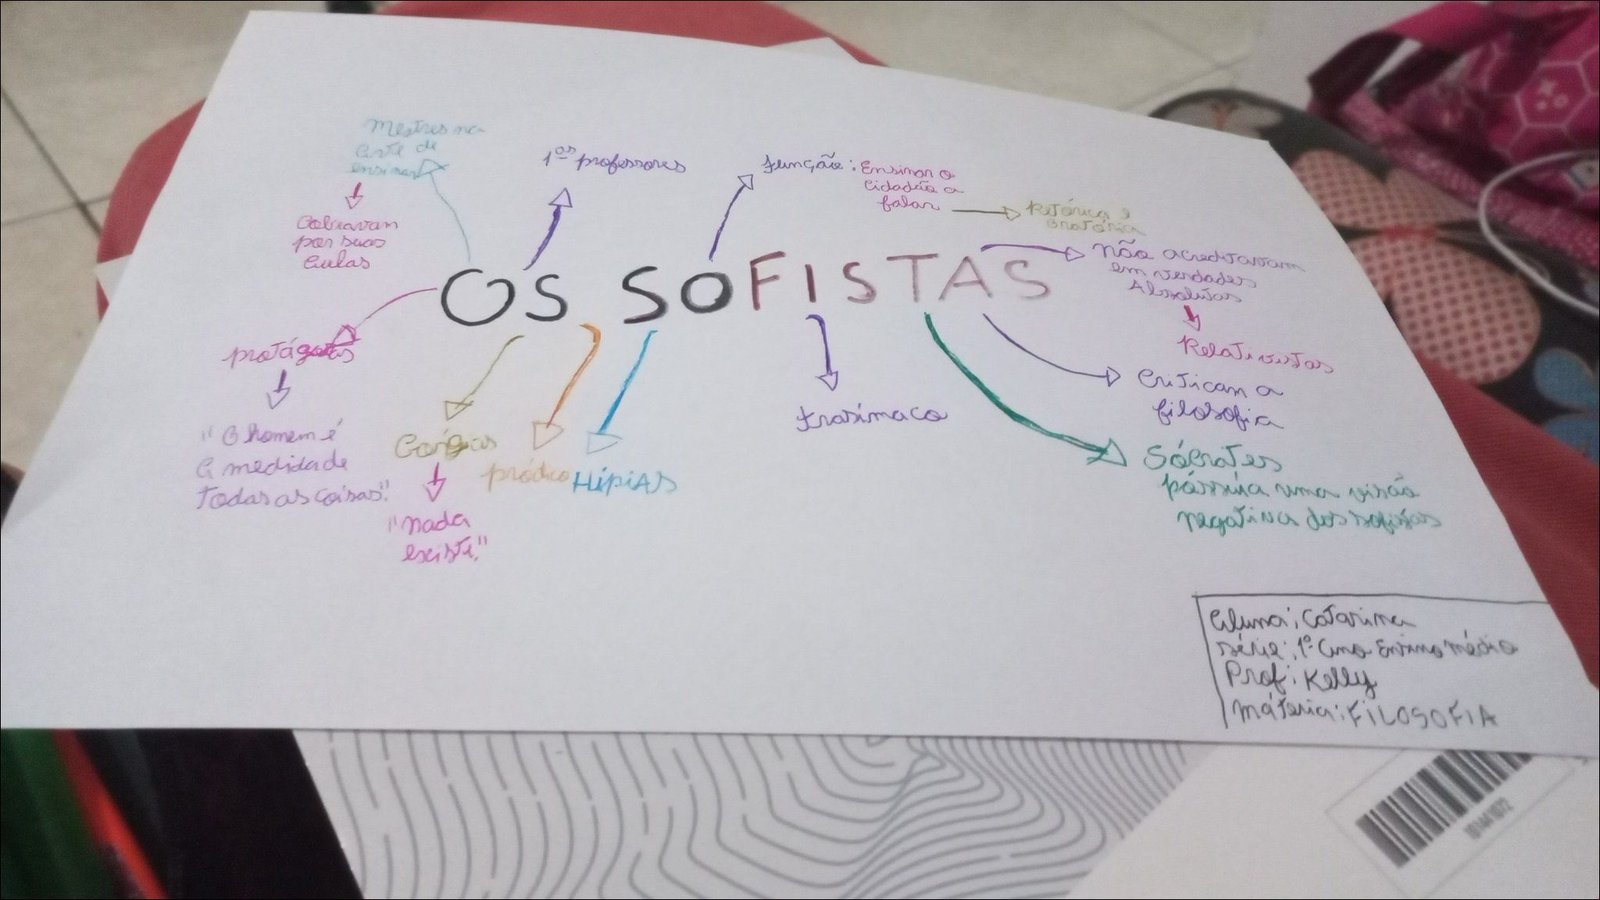 Mestres na
arte de
ensinar
Cobravam
por suas
aulas
1ºs professores
função: Ensinar o
cidadão a
falar
Retórica e
Oratória
OS SOFISTAS
não acreditavam
em verdades
Absolutas
Relativistas
Criticam a
filosofia
Sócrates
póssuia uma visão
negativa dos sofistas
protágoras
"O homem é
a medida de
todas as coisas."
Górgias
"nada
existe."
pródico
HípiAS
trasímaco
Aluna: Catarina
série: 1º ano Ensino médio
Prof: Kelly
máteria: FILOSOFIA